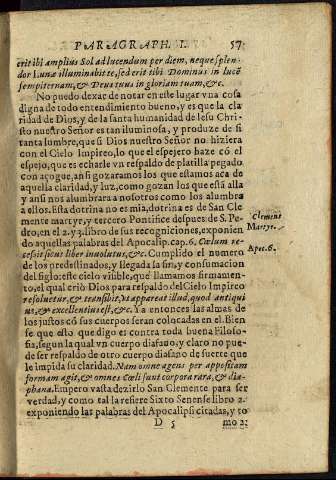 PARAGRAPH. I. 57
erit ibi amplius Sol ad lucendum per diem, neque splen-
dor Lunæ illuminabit te, sed erit tibi Dominus in lucẽ
sempiternam, & Deus tuus in gloriam tuam, &c.
No puedo dexar de notar en este lugar vna cosa
digna de todo entendimiento bueno, y es que la cla
ridad de Dios, y de la santa humanidad de Iesu Chri-
sto nuestro Señor es tan iluminosa, y produze de si
tanta lumbre, que si Dios nuestro Señor no hiziera
con el Cielo Impireo, lo que el espejero haze cõ el
espejo, que es echarle vn respaldo de platilla pegado
con açogue, ansi gozaramos los que estamos aca de
aquella claridad, y luz, como gozan los que està alla
y ansi nos alumbrara a nosotros como los alumbra
a ellos. Esta dotrina no es mia, dotrina es de San Cle
mente martyr, y tercero Pontifice despues de S. Pe-
dro, en el 2. y 3. libro de sus recogniciones, exponien
do aquellas palabras del Apocalip. cap. 6. Cœlum re-
cessit sicut liber inuolutus, &c. Cumplido el numero
de los predestinados, y llegada la fin, y consumacion
del siglo: este cielo visible, que llamamos firmamen-
to, el qual criò Dios para respaldo del Cielo Impireo
resoluetur, & transibit, vt appareat illud, quod antiqui
us, & excellentius est, &c. Y a entonces las almas de
los justos cõ sus cuerpos seran colocadas en el. Bien
se que esto que digo es contra toda buena Filoso-
fia, segun la qual vn cuerpo diafano, y claro no pue-
de ser respaldo de otro cuerpo diafano de suerte que
le impida su claridad. Nam omne agens per appositam
formam agit, & omnes Cœli sunt corpora rara, & dia-
phana. Empero vasta dezirlo San Clemente para ser
verdad, y como tal la refiere Sixto Senense libro 2.
exponiendo las palabras del Apocalipsi citadas, y to
D 5 mo 2:
Clemens
Martyr.
Apoc. 6.